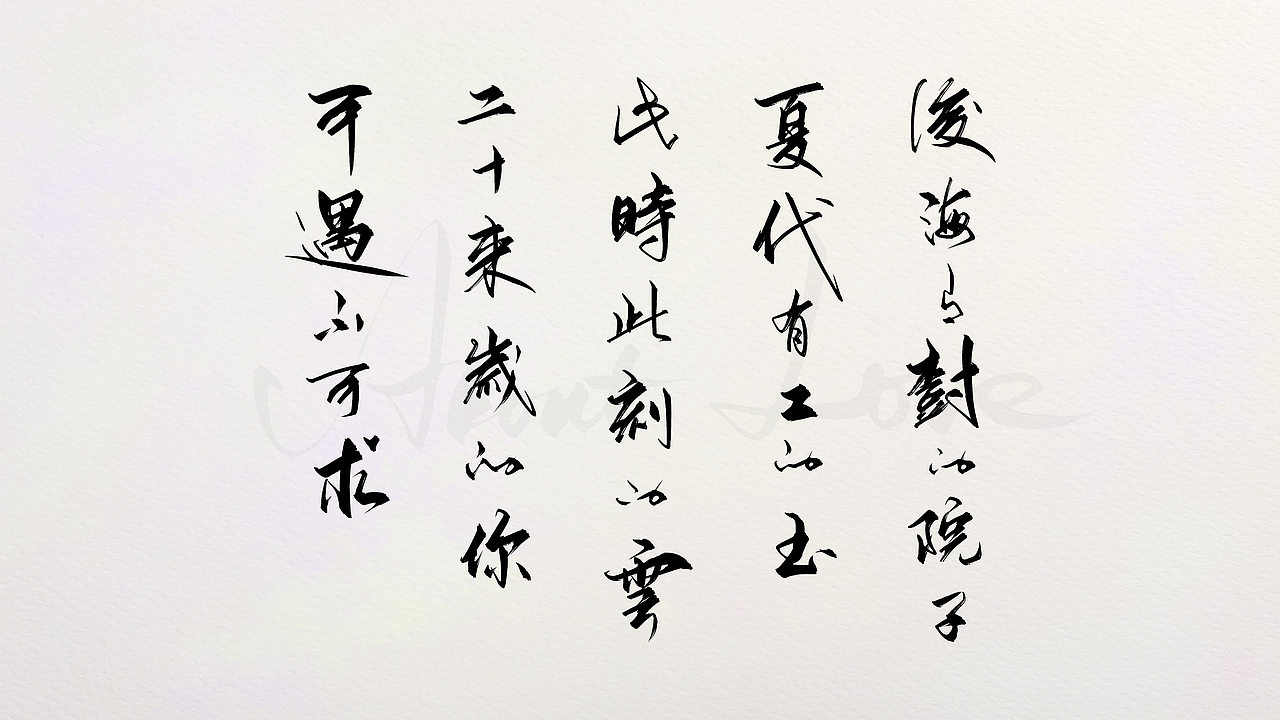 後海有樹的院子
夏代有工的玉
此時此刻的雲
二十來歲的你
可遇不可求